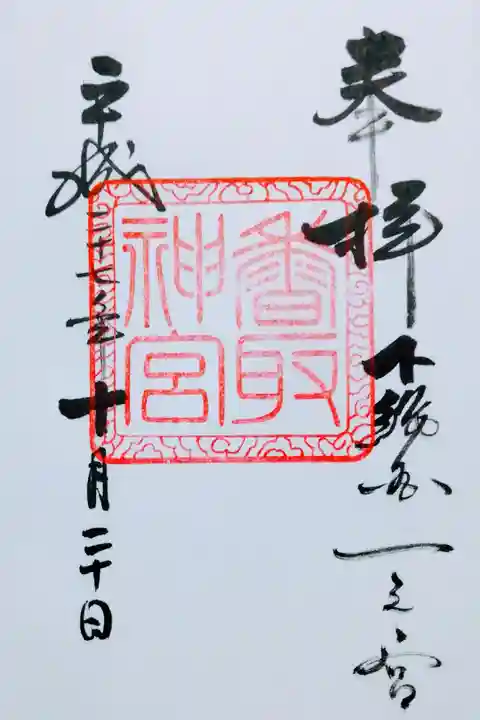 奉拝
下総国一之宮
香取
神宮
平成二十七年十月二十日